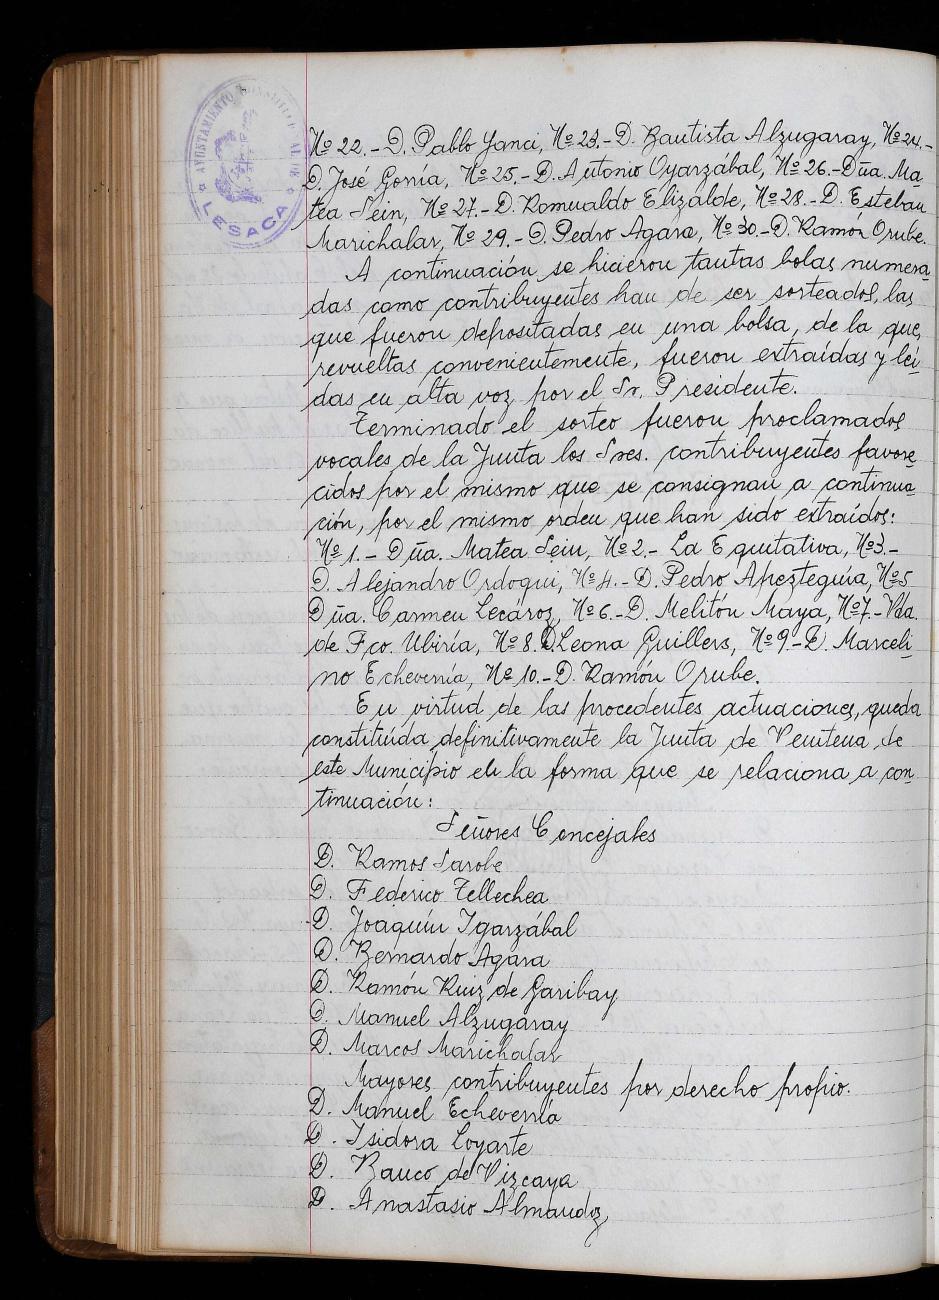 AYUNTAMIENTO CONSTITUCIONAL DE
LESACA
Nº 22.- D. Pablo Yanci, Nº 23.- D. Bautista Alzugaray, Nº 24.-
D. José Goñía, Nº 25.- D. Antonio Oyarzábal, Nº 26.- Dña. Ma-
tea Sein, Nº 27.- D. Romualdo Elizalde, Nº 28.- D. Esteban
Marichalar, Nº 29.- D. Pedro Agara, Nº 30.- D. Ramón Orube.
A continuación se hicieron tantas bolas numera-
das como contribuyentes han de ser sorteados, las
que fueron depositadas en una bolsa, de la que,
revueltas convenientemente, fueron extraídas y leí-
das en alta voz por el Sr. Presidente.
Terminado el sorteo fueron proclamados
vocales de la Junta los Sres. contribuyentes favore-
cidos por el mismo que se consignan a continua-
ción, por el mismo orden que han sido extraídos:
Nº 1.- Dña. Matea Sein, Nº 2.- La Equitativa, Nº 3.-
D. Alejandro Ordoqui, Nº 4.- D. Pedro Apezteguía, Nº 5
Dña. Carmen Lecároz, Nº 6.- D. Melitón Maya, Nº 7.- Vda.
de Fco. Ubiría, Nº 8. D. Leona Guillers, Nº 9.- D. Marceli-
no Echeverría, Nº 10.- D. Ramón Orube.
En virtud de las procedentes actuaciones, queda
constituída definitivamente la Junta de Veintena de
este Municipio en la forma que se relaciona a con-
tinuación:
Señores Concejales
D. Ramos Sarobe
D. Federico Tellechea
D. Joaquín Igarzábal
D. Bernardo Agara
D. Ramón Ruiz de Garibay
D. Manuel Alzugaray
D. Marcos Marichalar
Mayores contribuyentes por derecho propio.
D. Manuel Echeverría
D. Isidora Loyarte
D. Banco de Vizcaya
D. Anastasio Almandoz